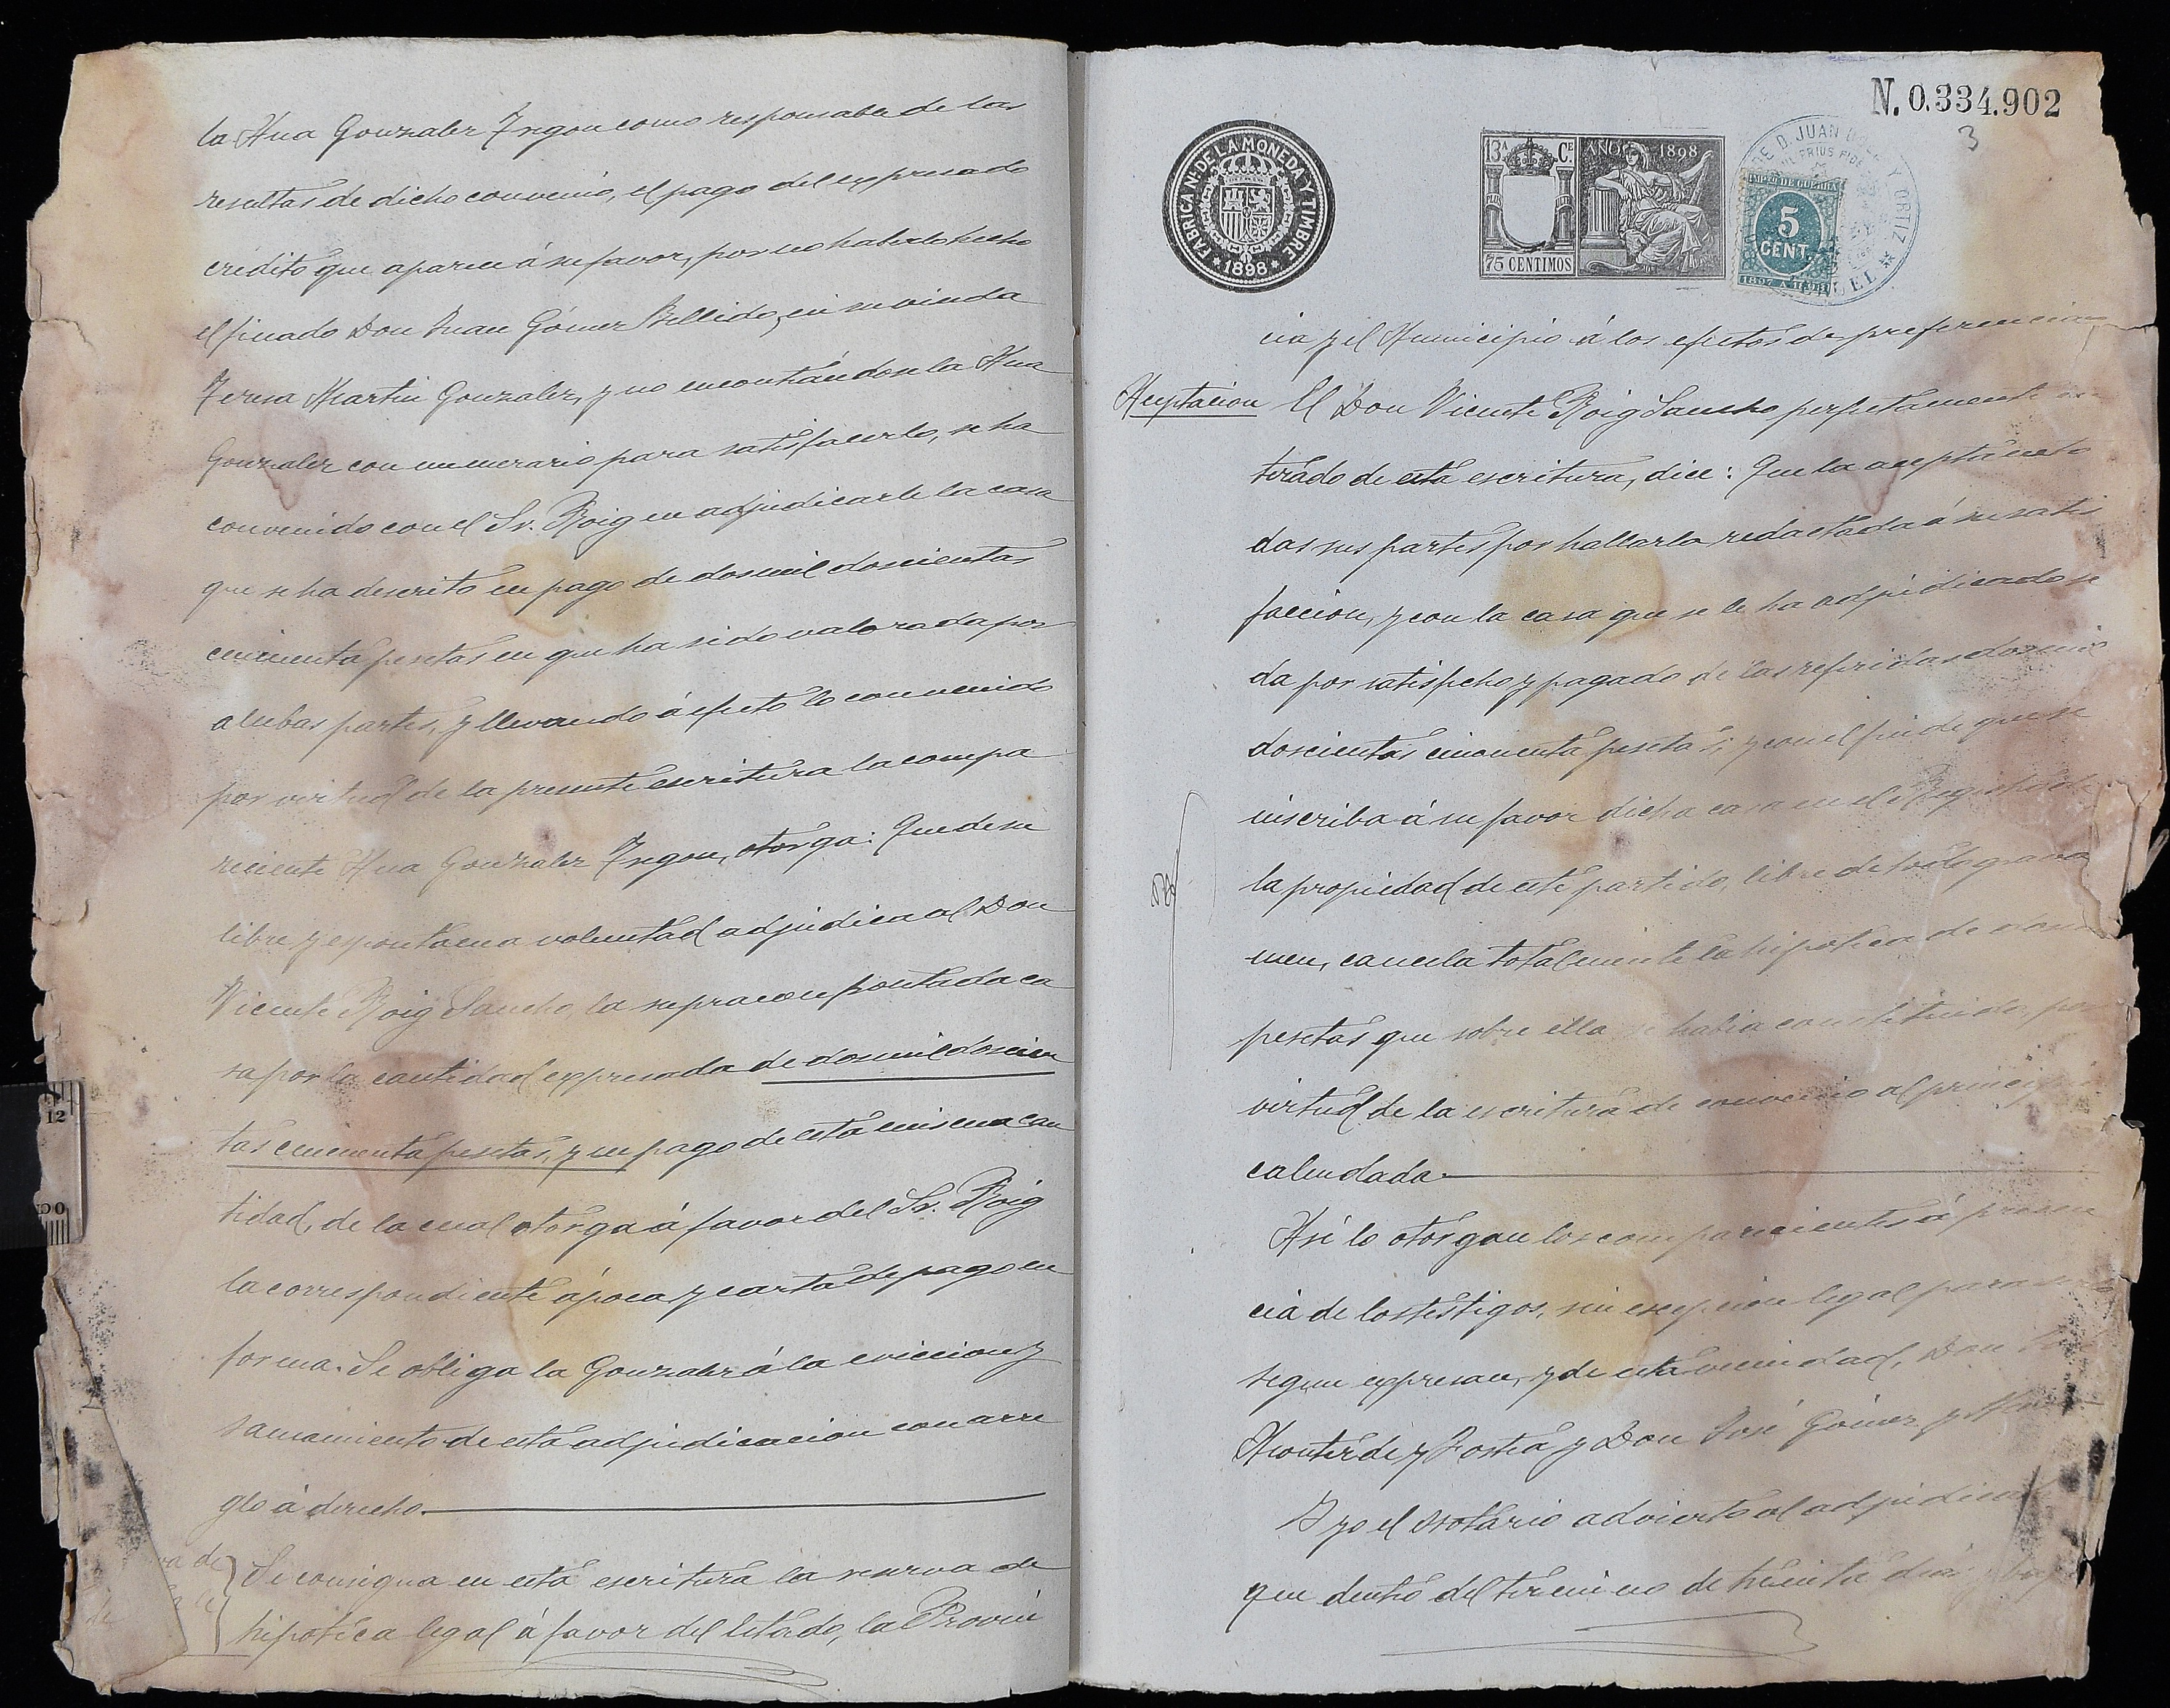 la Ana Gonzalez Yregon como responsable de las
resultas de dicho convenio, el pago del expresado
credito que aparece á su favor, por no haberlo hecho
el finado Don Juan Gómez Bellido, ni su viuda
Teresa Martin Gonzalez, y no encontrándose la Ana
Gonzalez con numerario para satisfacerlo, se ha
convenido con el Sr. Roig en adjudicarle la casa
que se ha descrito en pago de dosmil doscientas
cincuenta pesetas en que ha sido valorada por
ambas partes, y llevando á efecto lo convenido
por virtud de la presente escritura la compa
reciente Ana Gonzalez Yregon, otorga: Que de su
libre y espontanea voluntad adjudica al Don
Vicente Roig Sancho, la supra confrontada ca
sa por la cantidad expresada de dosmil doscien
tas cincuenta pesetas, y en pago de esta misma can
tidad, de la cual otorga á favor del Sr. Roig
la correspondiente ápoca y carta de pago en
forma. Se obliga la Gonzalez á la eviccion y
saneamiento de esta adjudicacion con arre
glo á derecho.
va de
Se consigna en esta escritura la reserva de
hipoteca legal á favor del Estado, la Provin
N. 0.334.902
3
FABRICA NAL DE LA MONEDA Y TIMBRE
* 1898 *
13ª Cᴱ AÑO 1898
75 CENTIMOS
DE D. JUAN Y ORTIZ
NIHIL PRIUS FIDE
IMPTO DE GUERRA
5
CENT.
1897 A 1898
cia y el Municipio á los efectos de preferencia
Aceptacion El Don Vicente Roig Sancho perfectamente en
terado de esta escritura, dice: Que la acepta en to
das sus partes por hallarla redactada á su satis
faccion, y con la casa que se le ha adjudicado se
da por satisfecho y pagado de las referidas dosmil
doscientas cincuenta pesetas; y con el fin de que se
inscriba á su favor dicha casa en el Registro de
la propiedad de este partido, libre de todo grava
men, cancela totalmente la hipoteca de dosmil
pesetas que sobre ella se habia constituido por
virtud de la escritura de convenio al principio
calendada.
Así lo otorgan los comparecientes á presen
cia de los testigos, sin excepcion legal para serlo
segun expresan, y de esta vecindad, Don José
Monterde y Rostia y Don José Gómez y
Y yo el Notario advierto al adjudicatario
que dentro del termino de treinta dias y bajo